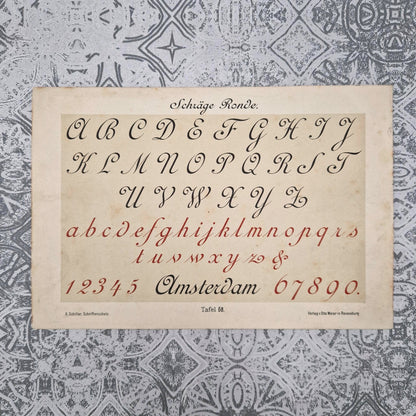 Schräge Ronde.
A B C D E F G H I J
K L M N O P Q R S T
U V W X Y Z
a b c d e f g h i j k l m n o p q r s
t u v w x y z &
1 2 3 4 5 Amsterdam 6 7 8 9 0.
Tafel 58.
Verlag v. Otto Maier in Ravensburg